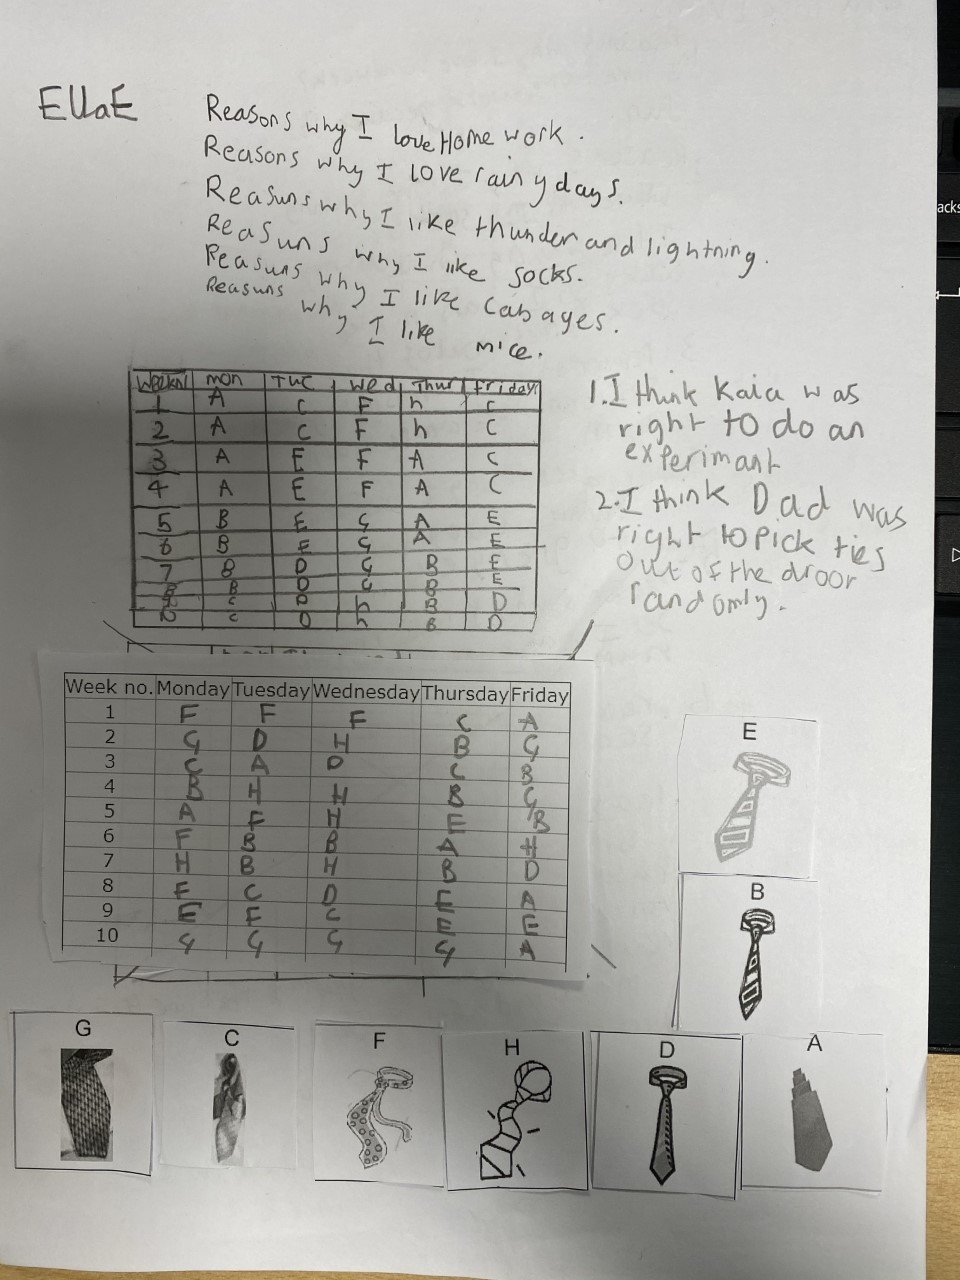 EllaE
Reasons why I love Home work.
Reasons why I love rainy days.
Reasuns why I like thunder and lightning.
Reasuns why I like socks.
Reasuns why I like Cabayes.
Reasuns why I like mice.
mon Tue Wed Thur Friday
1 A C F h C
2 A C F h C
3 A E F A C
4 A E F A C
5 B E G A E
6 B E G A E
7 B D G B E
8 B D G B E
C D h B D
C D h B D
1. I think Kaia was
right to do an
experimant
2. I think Dad was
right to pick ties
out of the droor
randomly.
Week no. Monday Tuesday Wednesday Thursday Friday
1 F F F C A
2 G D H B G
3 C A D C B
4 B H H B G
5 A F H E B
6 F B B A H
7 H B H B D
8 E C D E A
9 E F C E E
10 G G G G A
E
B
G
C
F
H
D
A
acks